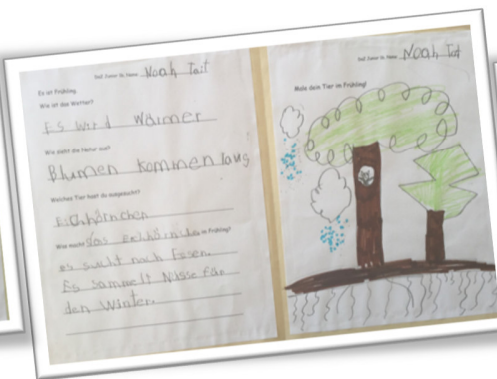 Name Noah Tait
Es ist Frühling.
Wie ist das Wetter?
Es wird wärmer
Wie sieht die Natur aus?
Blumen kommen raus
Welches Tier hast du ausgesucht?
Eichhörnchen
Was macht das Eichhörnchen im Frühling?
es sucht nach Essen.
Es sammelt Nüsse für
den Winter.
Name Noah Tait
Male dein Tier im Frühling!